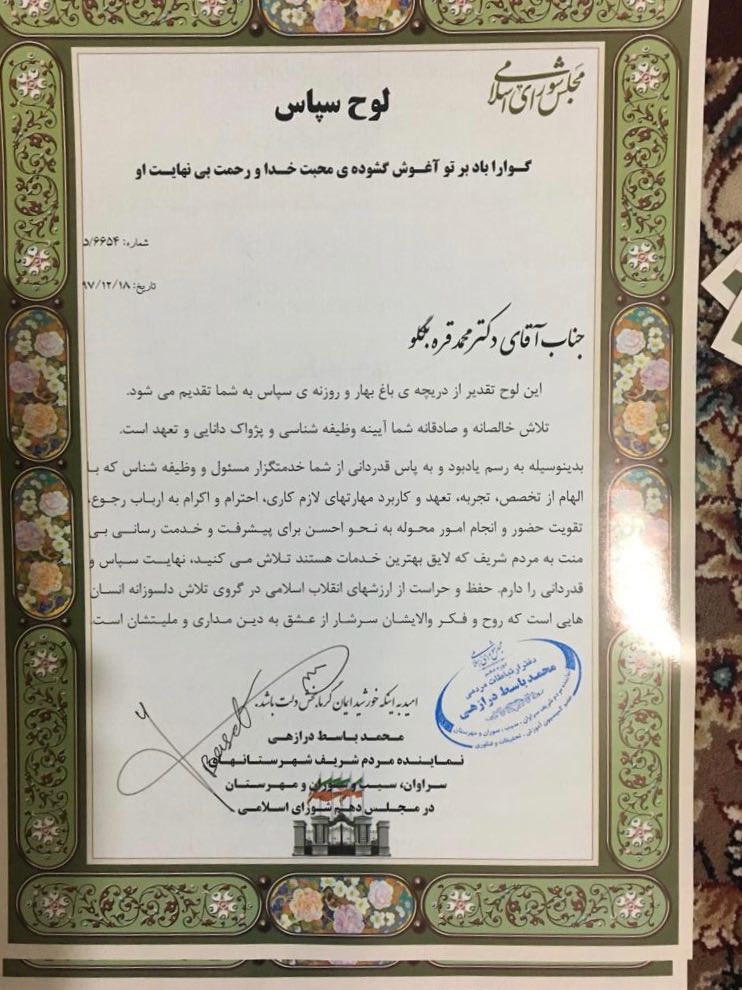 مجلس شورای اسلامی
لوح سپاس
گوارا باد بر تو آغوش گشوده ی محبت خدا و رحمت بی نهایت او
شماره: ۶۶۵۴/د
تاریخ: ۹۷/۱۲/۱۸
جناب آقای دکتر محمد قره بگلو
این لوح تقدیر از دریچه ی باغ بهار و روزنه ی سپاس به شما تقدیم می شود.
تلاش خالصانه و صادقانه شما آیینه وظیفه شناسی و پژواک دانایی و تعهد است.
بدینوسیله به رسم یادبود و به پاس قدردانی از شما خدمتگزار مسئول و وظیفه شناس که با
الهام از تخصص، تجربه، تعهد و کاربرد مهارتهای لازم کاری، احترام و اکرام به ارباب رجوع،
تقویت حضور و انجام امور محوله به نحو احسن برای پیشرفت و خدمت رسانی بی
منت به مردم شریف که لایق بهترین خدمات هستند تلاش می کنید، نهایت سپاس و
قدردانی را دارم. حفظ و حراست از ارزشهای انقلاب اسلامی در گروی تلاش دلسوزانه انسان
هایی است که روح و فکر والایشان سرشار از عشق به دین مداری و ملیتشان است.
امید به اینکه خورشید ایمان گرمابخش دلت باشد.
محمد باسط درازهی
نماینده مردم شریف شهرستانهای
سراوان، سیب و سوران و مهرستان
در مجلس دهم شورای اسلامی
Baset
مجلس شورای اسلامی
دفتر ارتباطات مردمی
محمد باسط درازهی
نماینده مردم شریف سراوان، سیب و سوران و مهرستان
عضو کمیسیون آموزش، تحقیقات و فناوری